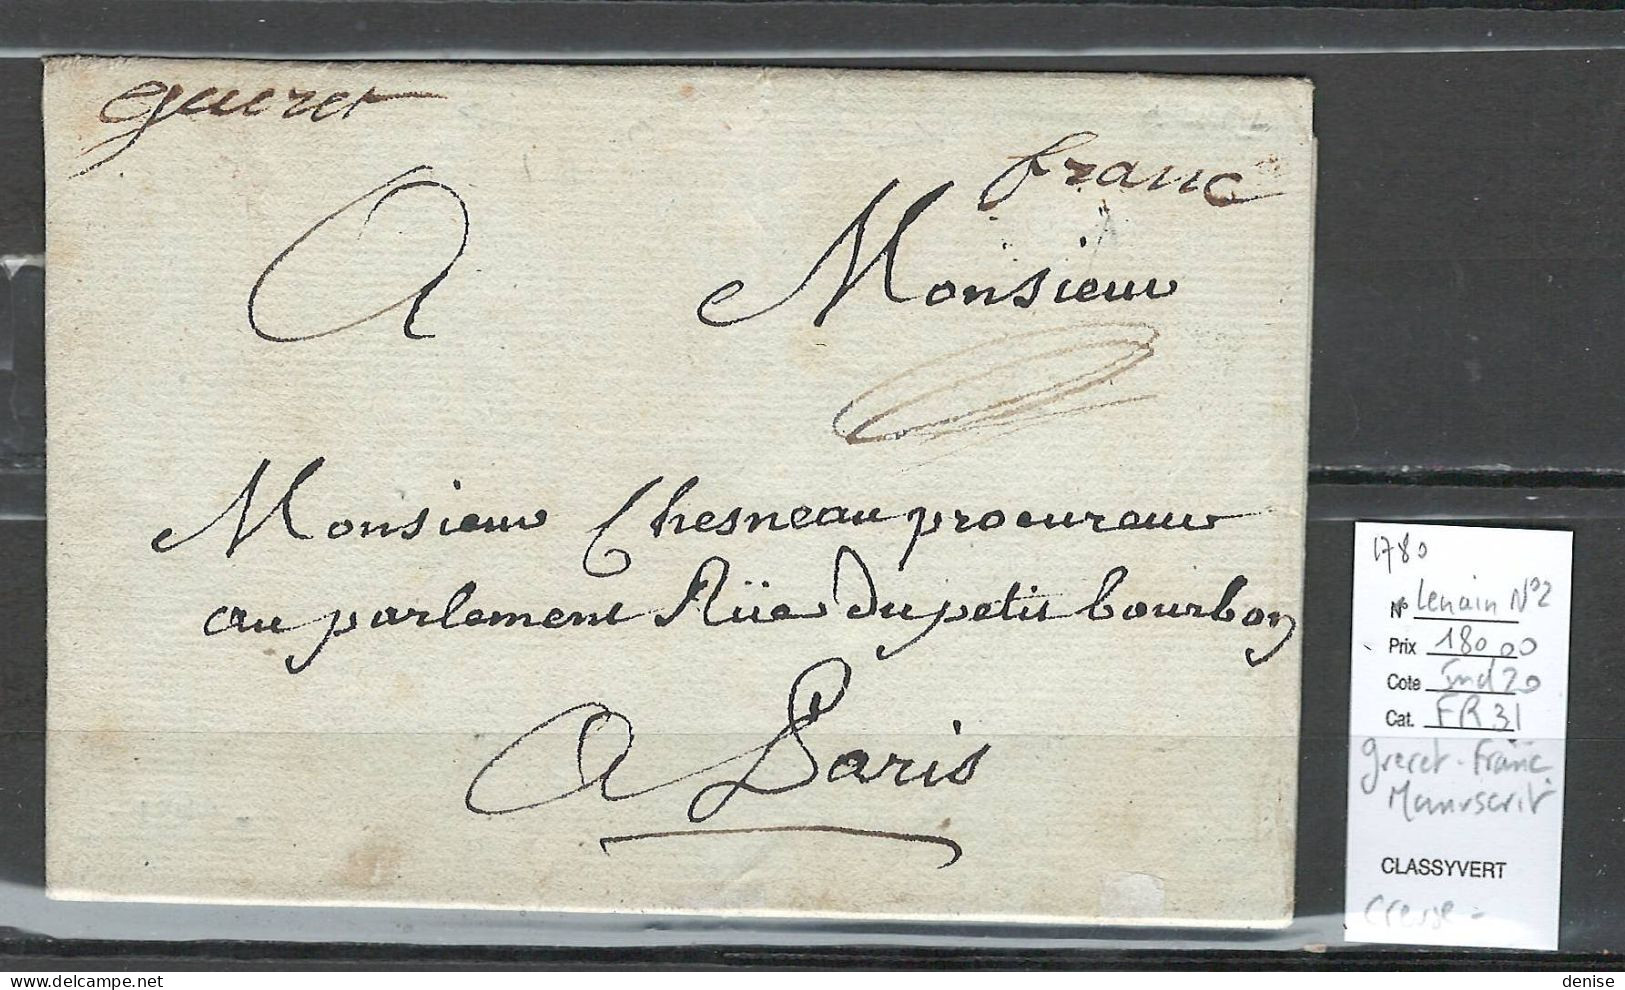 gueret
franc
A Monsieur
Monsieur Chesneau procureur
au parlement Rüe du petit bourbon
A Paris
1780
N° Lenain N°2
Prix 180 00
Cote Ind 20
Cat. FR 31
Greret - Franc
Manuscrit
CLASSYVERT
Creuse -
denise